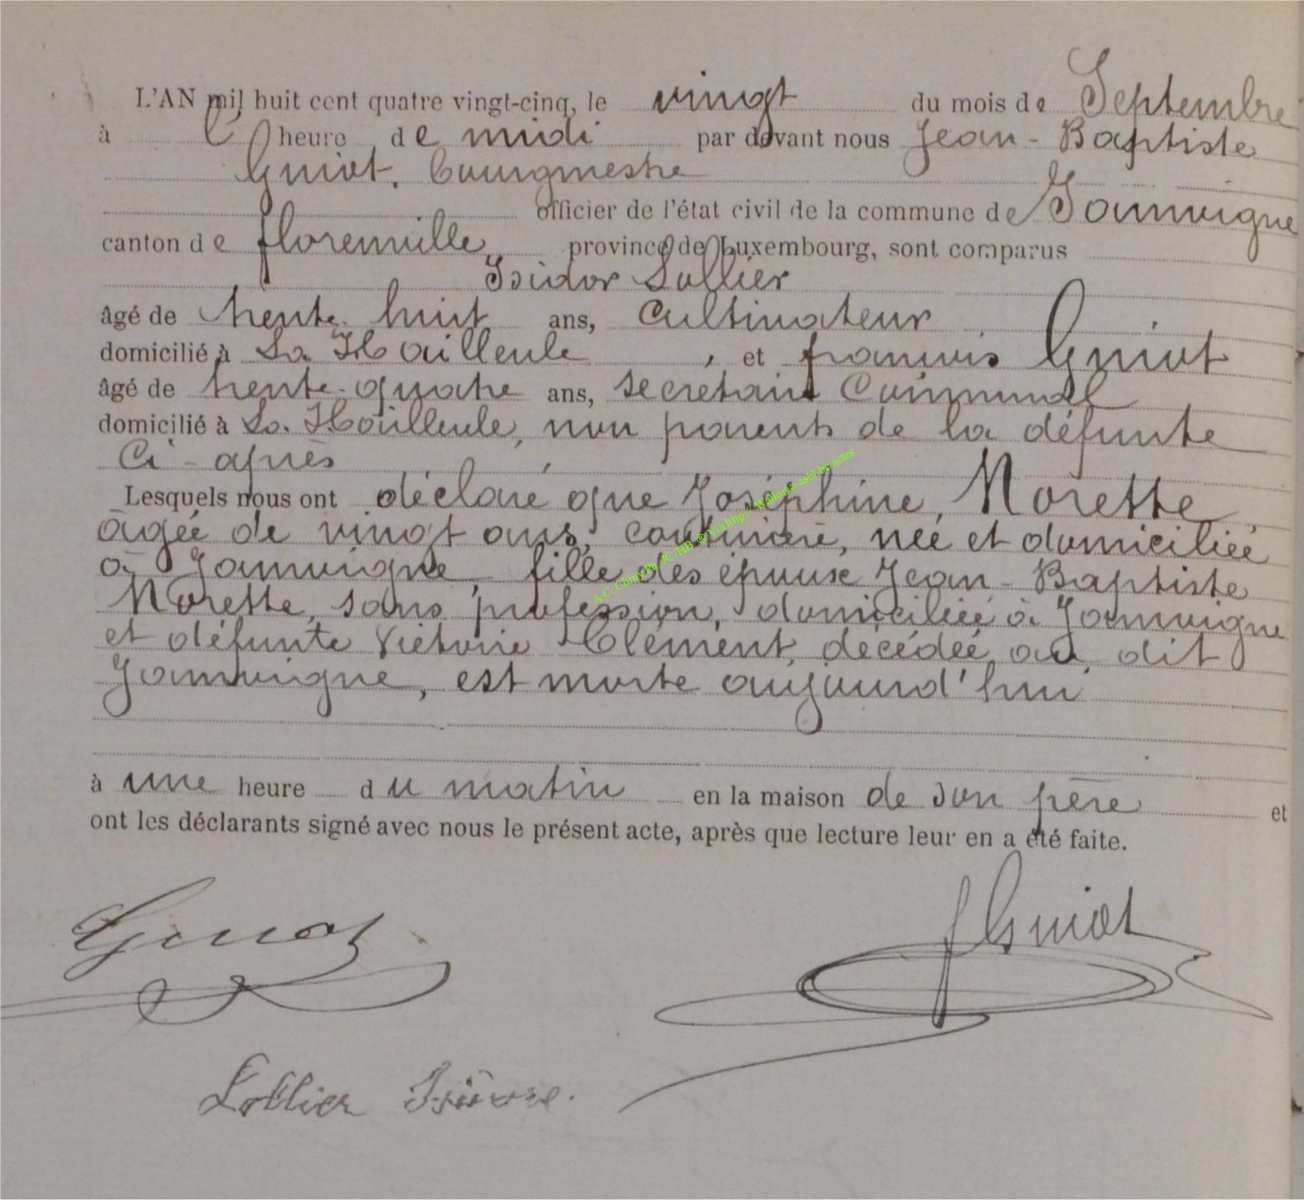 L'AN mil huit cent quatre vingt-cinq, le vingt du mois de Septembre
à l' heure de midi par devant nous Jean-Baptiste
Guiot, bourgmestre
officier de l'état civil de la commune de Jamoigne
canton de florenville, province de Luxembourg, sont comparus
Isidor Lallier
âgé de trente-huit ans, Cultivateur
domicilié à La Hailleule, et francois Guiot
âgé de trente-quatre ans, secretaire Communal
domicilié à La Hailleule, non parents de la défunte
Ci-après
Lesquels nous ont déclaré que Joséphine Norette
âgée de vingt ans, couturière, née et domiciliée
à Jamoigne, fille des épouse Jean-Baptiste
Norette, sans profession, domiciliée à Jamoigne
et défunte Victorie Clément, décédée au dit
Jamoigne, est morte aujourd'hui
à une heure du matin en la maison de son père et
ont les déclarants signé avec nous le présent acte, après que lecture leur en a été faite.
Guiot
f Guiot
Lallier Isidore.